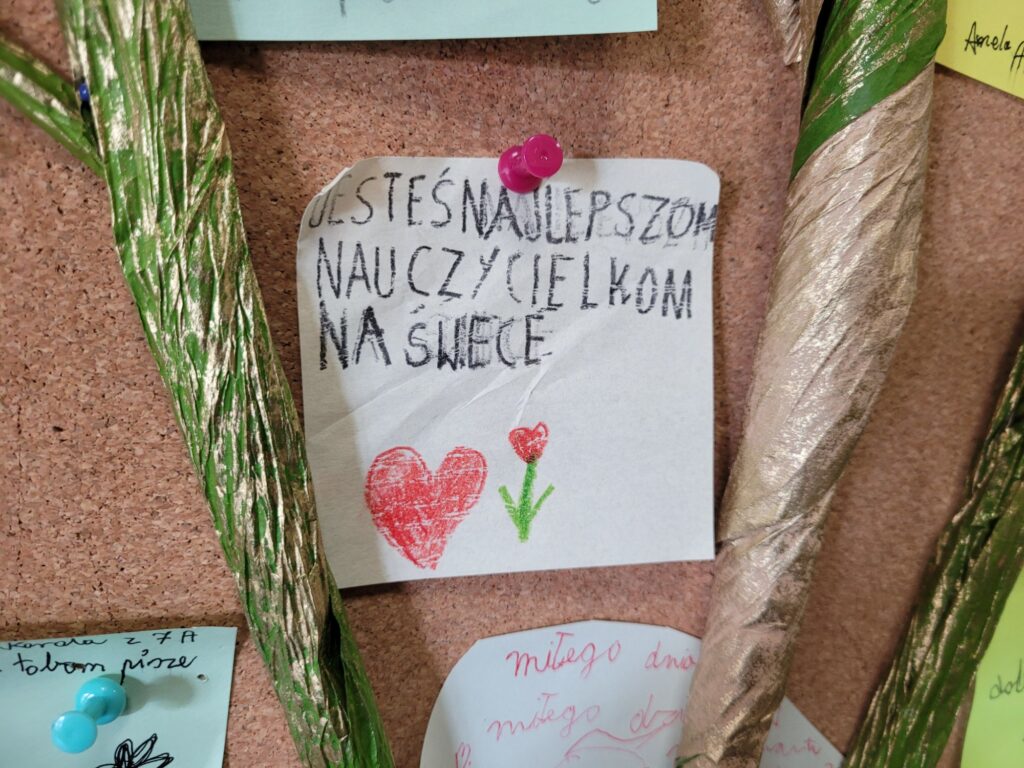 Amela A
JESTEŚ NAJLEPSZOM
NAUCZYCIELKOM
NA ŚWECE
z 7A
tobom pisze
miłego dnia
miłego